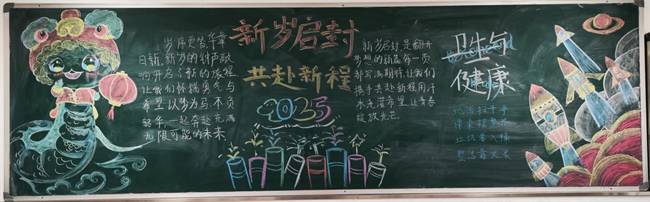 新岁启封
共赴新程
2025
岁序更替,华章
日新,新岁的钟声敲
响开启了新的旅程
让我们怀揣勇气与
希望以梦为马,不负
韶华,一起奔赴充满
无限可能的未来
新岁启封是翻开
梦想的新篇每一页
都写满期待让我们
携手共赴新程用汗
水浇灌希望让青春
绽放光芒
卫生与
健康